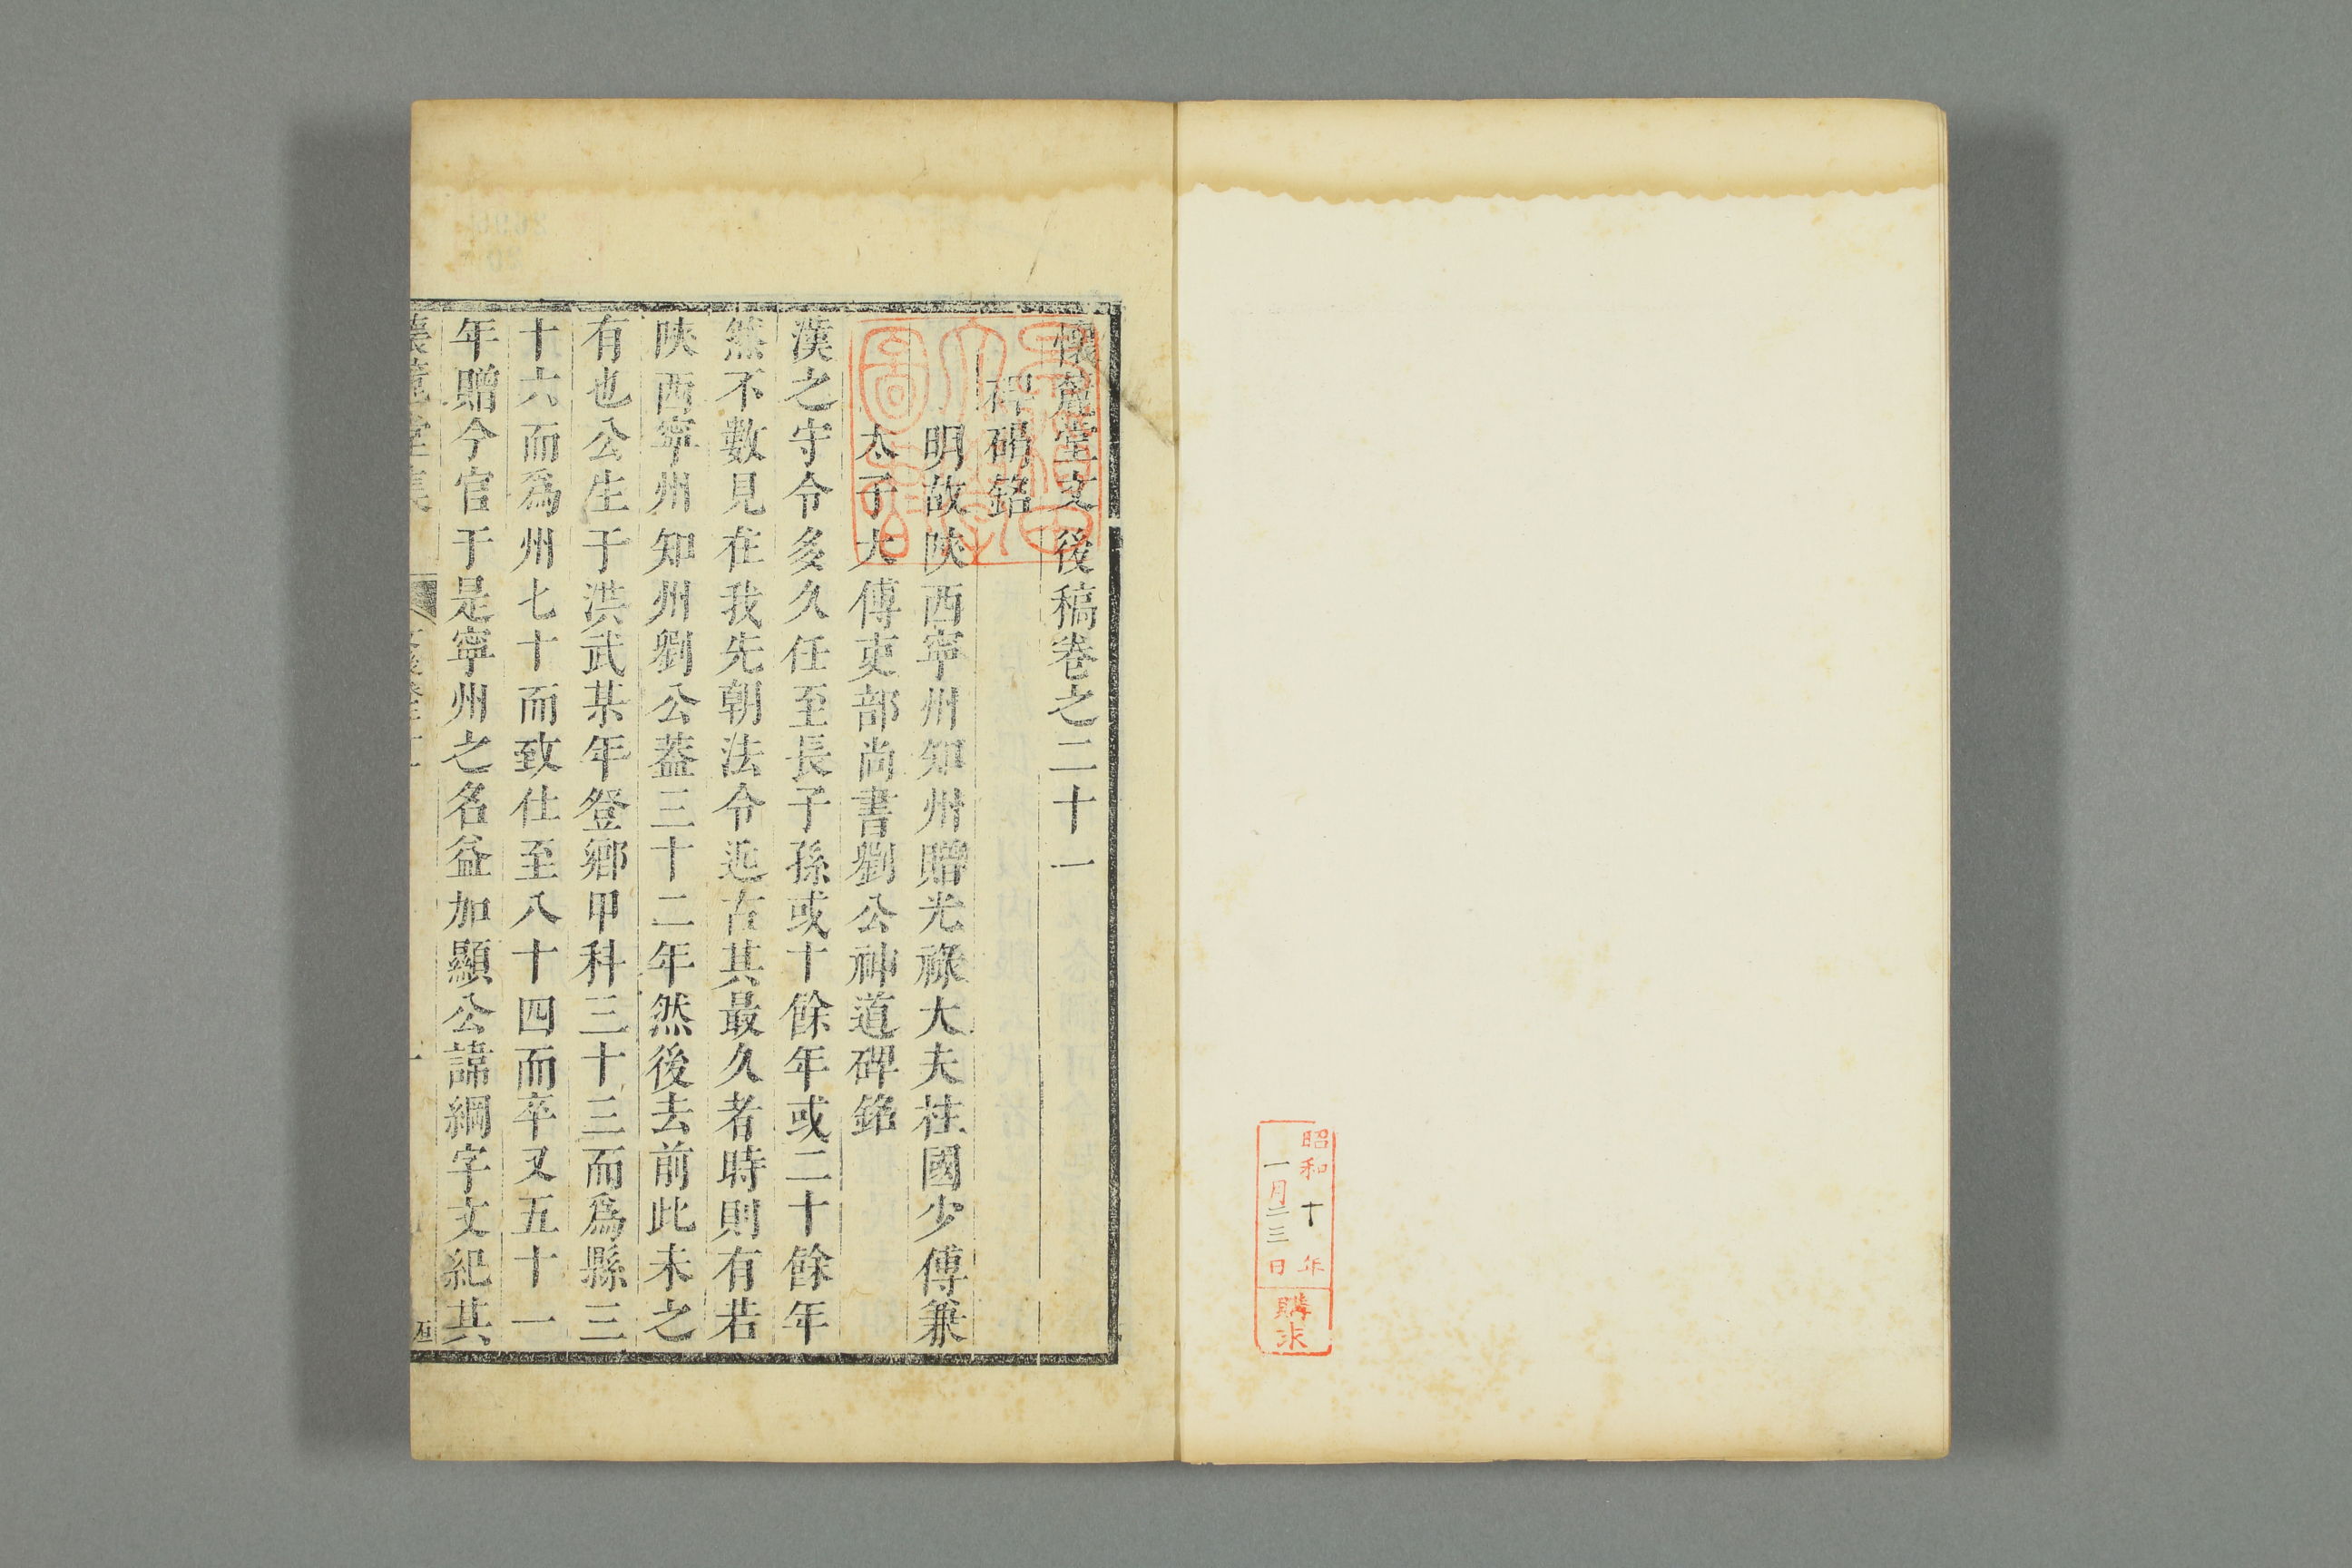 昭和十年
一月二三日
購求
懷麓堂文後稿卷之二十一
碑碣銘
明故陝西寧州知州贈光祿大夫柱國少傅兼
太子太傅吏部尚書劉公神道碑銘
漢之守令多久任至長子孫或十餘年或二十餘年
然不數見在我先朝法令近古其最久者時則有若
陝西寧州知州劉公葢三十二年然後去前此未之
有也公生于洪武某年登鄉甲科三十三而爲縣三
十六而爲州七十而致仕至八十四而卒又五十一
年贈今官于是寧州之名益加顯公諱綱字文紀其
懷麓堂集